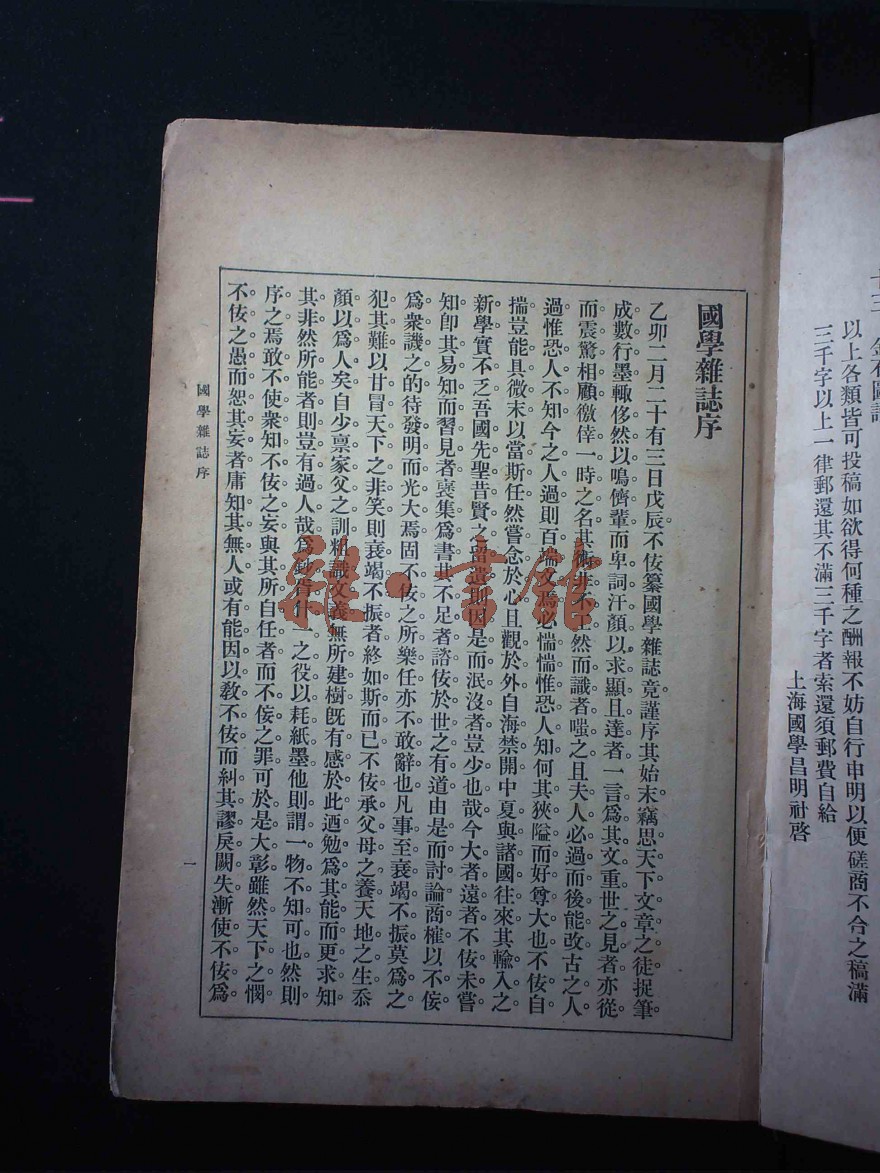 十三　金石圖譜
以上各類皆可投稿如欲得何種之酬報不妨自行申明以便磋商不合之稿滿
三千字以上一律郵還其不滿三千字者索還須郵費自給
上海國學昌明社啓
國學雜誌序
乙卯二月二十有三日戊辰不佞纂國學雜誌竟謹序其始末竊思天下文章之徒捉筆
成數行墨輒侈然以鳴儕輩而卑詞汗顏以求顯且達者一言爲其文重世之見者亦從
而震驚相顧徼倖一時之名其術非不工然而識者嗤之且夫人必過而後能改古之人
過惟恐人不知今之人過則百端文焉必惴惴惟恐人知何其狹隘而好尊大也不佞自
揣豈能具微末以當斯任然嘗念於心且觀於外自海禁開中夏與諸國往來其輸入之
新學實不乏吾國先聖昔賢之留遺則因是而泯沒者豈少也哉今大者遠者不佞未嘗
知卽其易知而習見者裒集爲書其不足者諮佞於世之有道由是而討論商榷以不佞
爲衆譏之的待發明而光大焉固不佞之所樂任亦不敢辭也凡事至衰竭不振莫爲之
犯其難以甘冒天下之非笑則衰竭不振者終如斯而已不佞承父母之養天地之生忝
顏以爲人矣自少禀家父之訓粗識文義無所建樹旣有感於此迺勉爲其能而更求知
其非然所能者則豈有過人哉爲鈔胥什一之役以耗紙墨他則謂一物不知可也然則
序之焉敢不使衆知不佞之妄與其所自任者而不佞之罪可於是大彰雖然天下之憫
不佞之愚而恕其妄者庸知其無人或有能因以敎不佞而糾其謬戾闕失漸使不佞爲
國學雜誌序
一
雜·書館